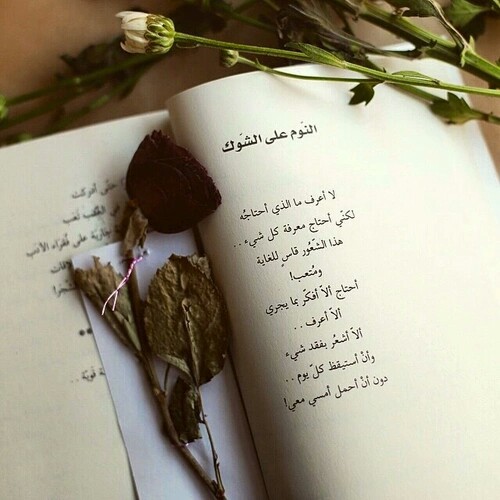 النّوم على الشّوك
لا أعرف ما الذي أحتاجُه
لكنّي أحتاج معرفة كل شيء..
هذا الشّعُور قاسٍ للغاية
ومُتعب!
أحتاج ألاّ أفكّر بما يجري
ألاّ أعرف..
ألاّ أشعُر بفقد شيء
وأنْ أستيقظ كلّ يوم..
دون أنْ أحمل أمسي معي!
حتّى أدركت
تعب
على فُقراء الأدب
قويّة..